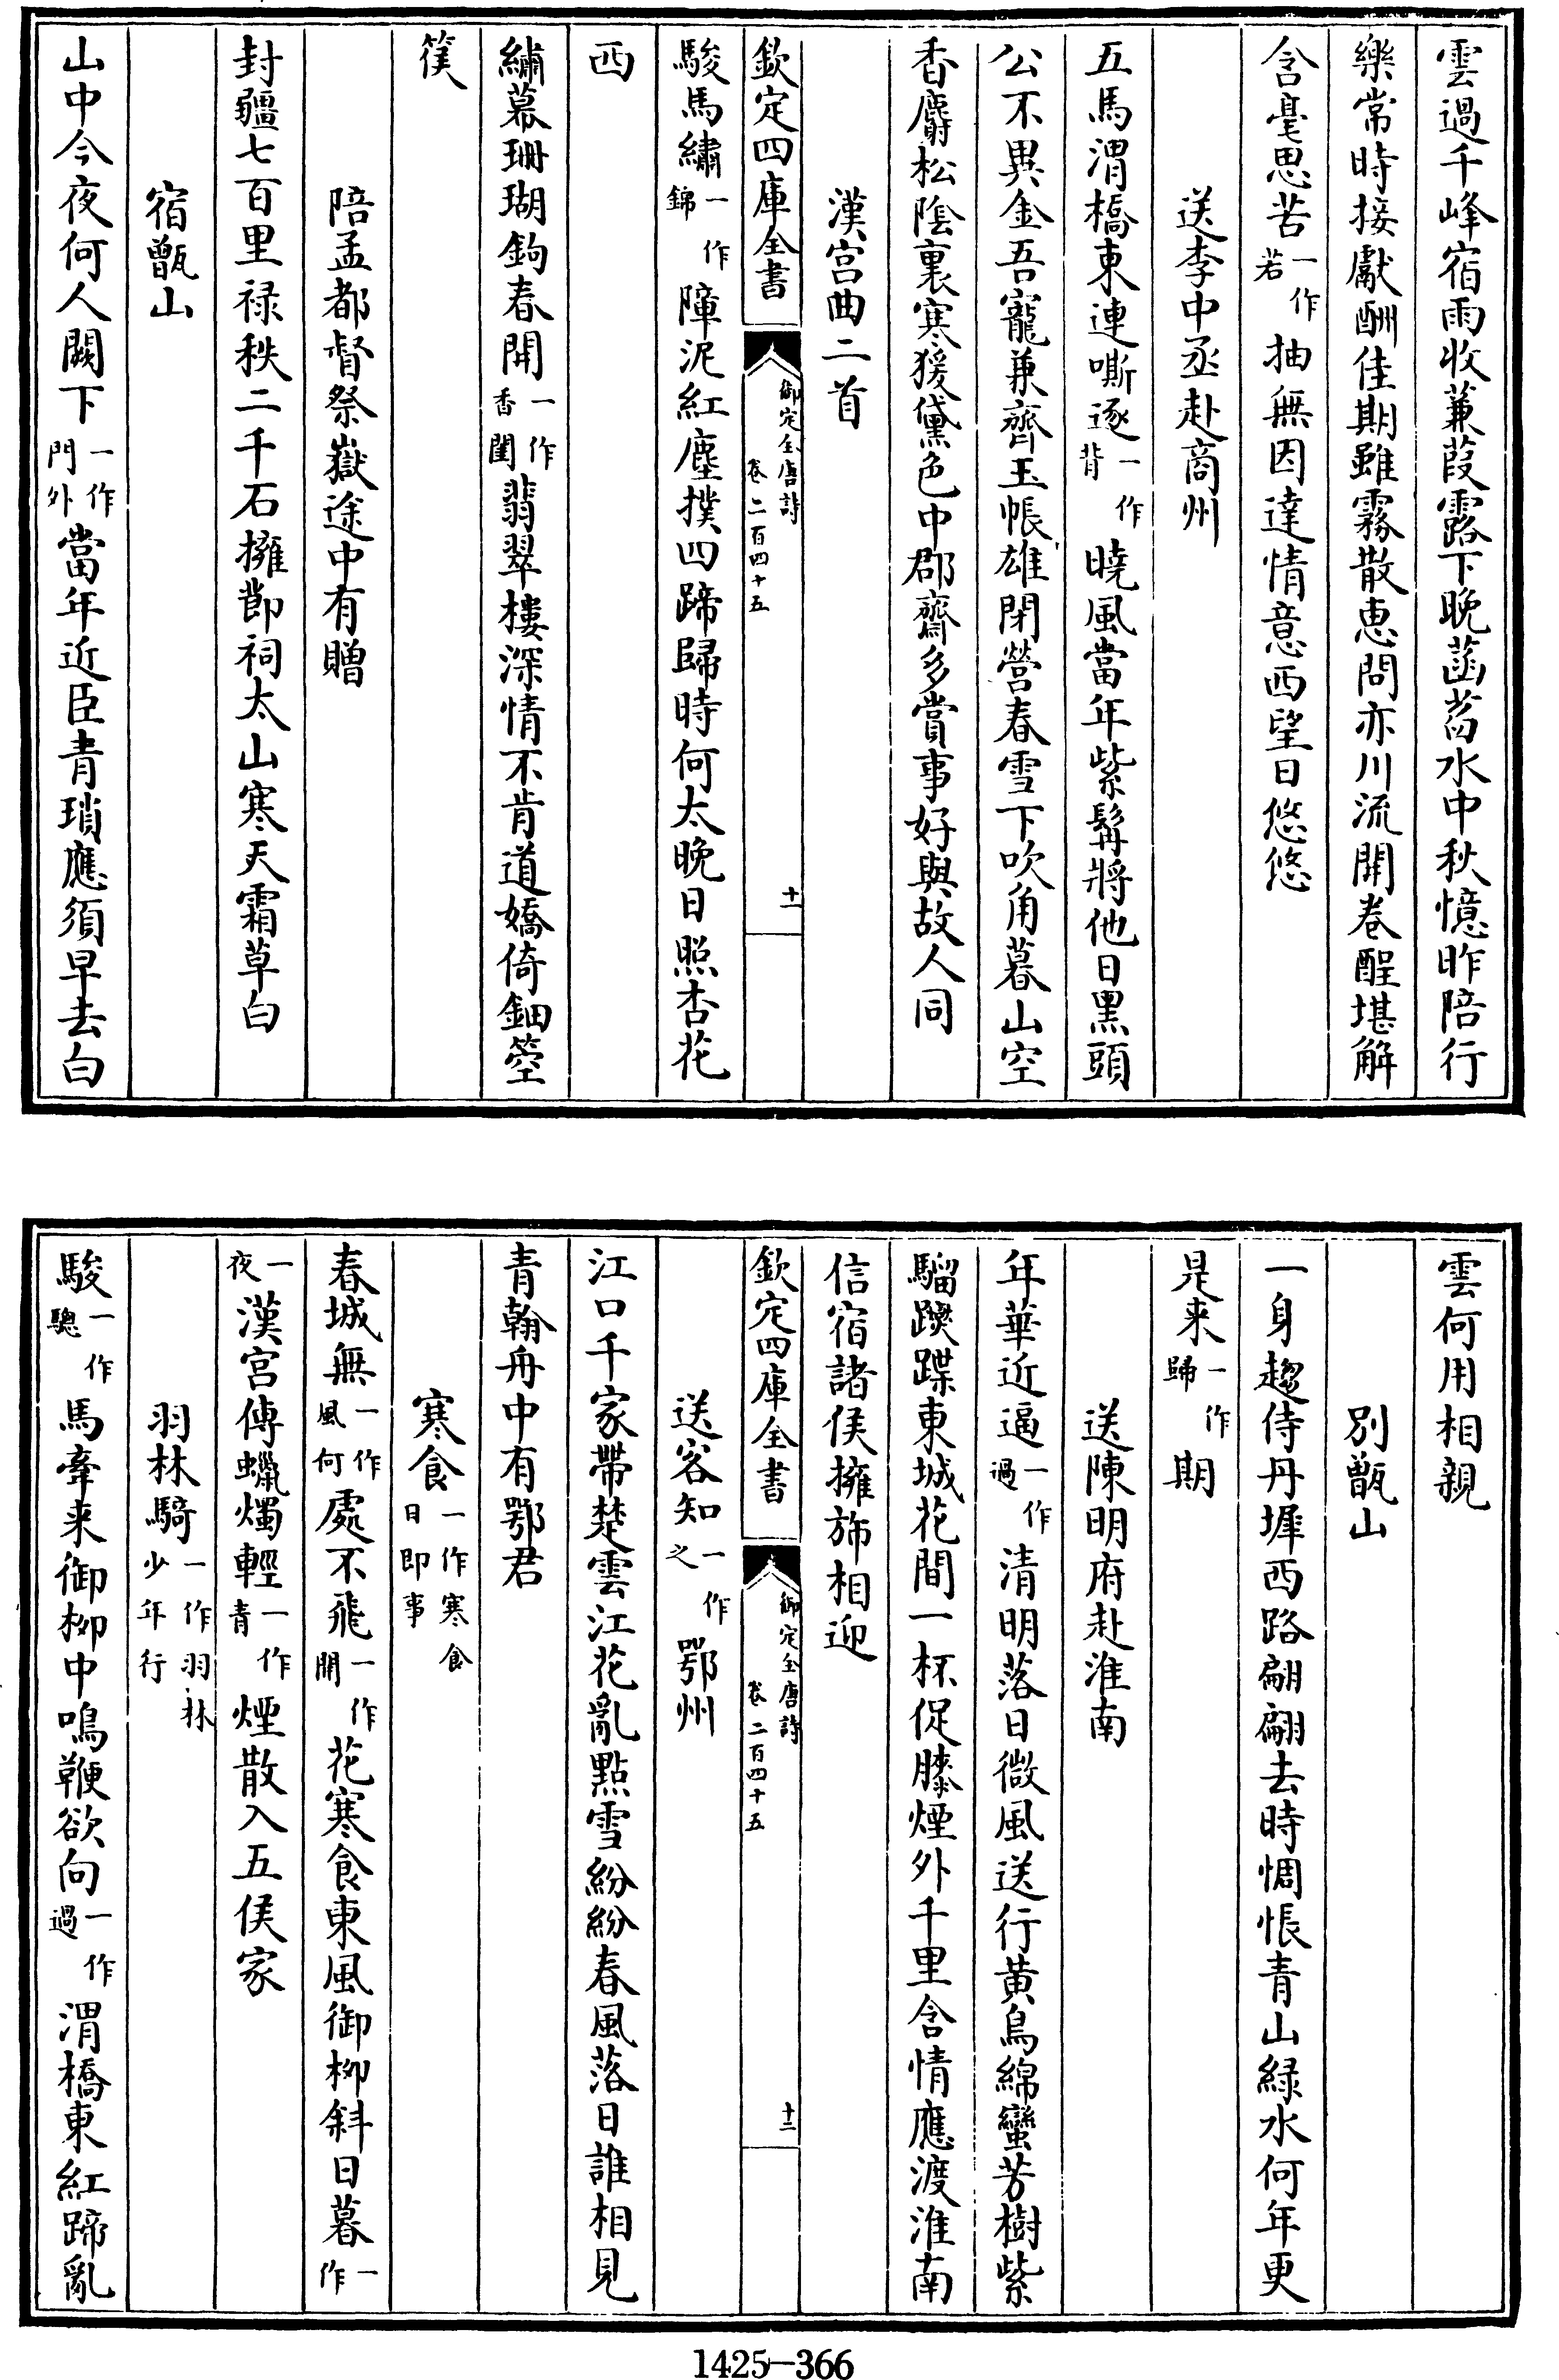 雲過千峰宿雨收蒹葭露下晚菡萏水中秋憶昨陪行
樂常時接獻酬佳期雖霧散惠問亦川流開卷酲堪解
含毫思苦一作若抽無因達情意西望日悠悠
送李中丞赴商州
五馬渭橋東連嘶逐一作背曉風當年紫髯將他日黑頭
公不異金吾寵兼齊玉帳雄閉營春雪下吹角暮山空
香麝松陰裏寒猨黛色中郡齋多賞事好與故人同
漢宮曲二首
欽定四庫全書
御定全唐詩
卷二百四十五
十一
駿馬繡一作錦障泥紅塵撲四蹄歸時何太晚日照杏花
西
繡幕珊瑚鉤春開一作香閨翡翠樓深情不肯道嬌倚鈿箜
篌
陪孟都督祭嶽途中有贈
封疆七百里禄秩二千石擁節祠太山寒天霜草白
宿甑山
山中今夜何人闕下一作門外當年近臣青瑣應須早去白
雲何用相親
別甑山
一身趨侍丹墀西路翩翩去時惆悵青山綠水何年更
是来一作歸期
送陳明府赴淮南
年華近逼一作過清明落日微風送行黄鳥綿蠻芳樹紫
騮躞蹀東城花間一杯促膝煙外千里含情應渡淮南
信宿諸侯擁斾相迎
欽定四庫全書
御定全唐詩
卷二百四十五
十二
送客知一作之鄂州
江口千家帶楚雲江花亂點雪紛紛春風落日誰相見
青翰舟中有鄂君
寒食一作寒食日即事
春城無一作風何處不飛一作開花寒食東風御柳斜日暮一作
夜漢宮傳蠟燭輕一作青煙散入五侯家
羽林騎一作羽林少年行
駿一作驄馬牽来御柳中鳴鞭欲向一作過渭橋東紅蹄亂
1425—366